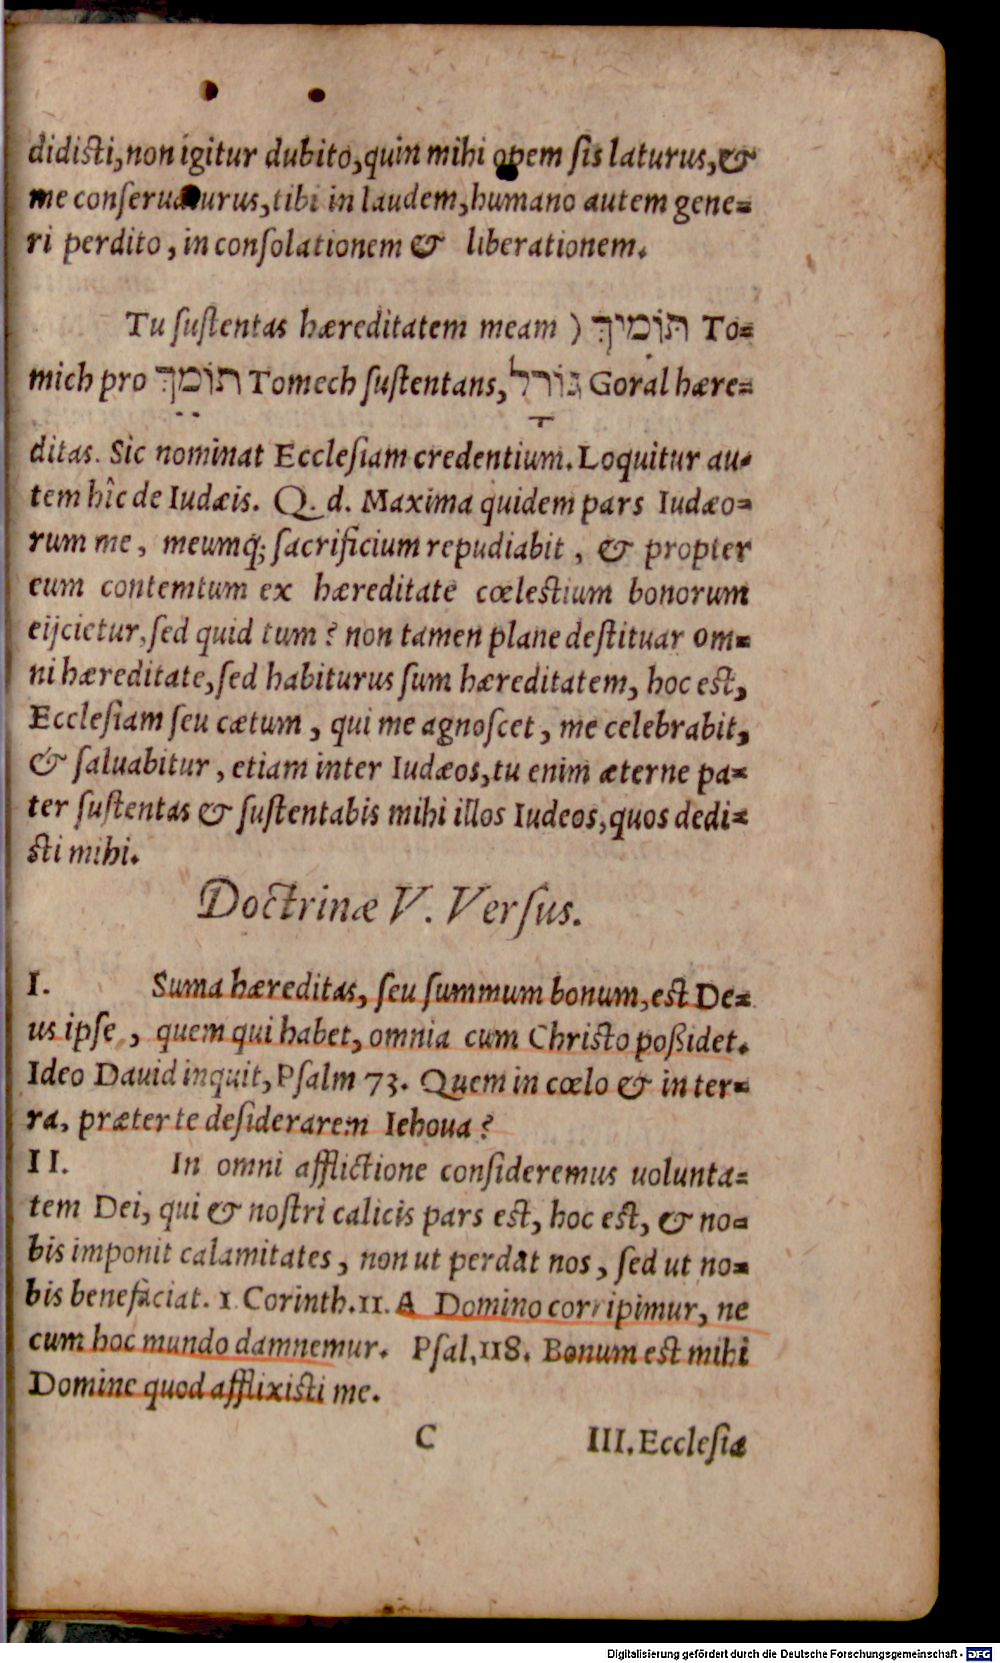 didisti, non igitur dubito, quin mihi opem ſis laturus, &
me conſeruaturus, tibi in laudem, humano autem gene-
ri perdito, in conſolationem & liberationem.
Tu ſuſtentas hæreditatem meam ) תּוֹמִיךְ To-
mich pro תוֹמֵךְ Tomech ſuſtentans, גּוֹרָל Goral hære-
ditas. Sic nominat Eccleſiam credentium. Loquitur au-
tem hîc de Iudæis. Q. d. Maxima quidem pars Iudæo-
rum me, meumq; ſacrificium repudiabit, & propter
eum contemtum ex hæreditate cœlestium bonorum
eijcietur, ſed quid tum? non tamen plane deſtituar om-
ni hæreditate, ſed habiturus ſum hæreditatem, hoc est,
Eccleſiam ſeu cætum, qui me agnoſcet, me celebrabit,
& ſaluabitur, etiam inter Iudæos, tu enim æterne pa-
ter ſuſtentas & ſuſtentabis mihi illos Iudeos, quos dedi-
sti mihi.
Doctrinæ V. Verſus.
I. Suma hæreditas, ſeu ſummum bonum, est De-
us ipſe, quem qui habet, omnia cum Christo poßidet.
Ideo Dauid inquit, Pſalm 73. Quem in cœlo & in ter-
ra, præter te deſiderarem Iehoua?
II. In omni afflictione conſideremus uolunta-
tem Dei, qui & noſtri calicis pars est, hoc est, & no-
bis imponit calamitates, non ut perdat nos, ſed ut no-
bis benefaciat. 1 Corinth. 11. A Domino corripimur, ne
cum hoc mundo damnemur. Pſal. 118. Bonum est mihi
Domine quod afflixisti me.
C III. Eccleſiæ
Digitalisierung gefördert durch die Deutsche Forschungsgemeinschaft - DFG